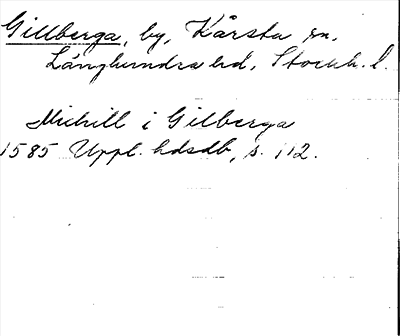 Gillberga, by, Kårsta sn.
Långhundra hd, Stockh. l.
Michill i Gilberga
1585 Uppl. hdsdb, s. 112.